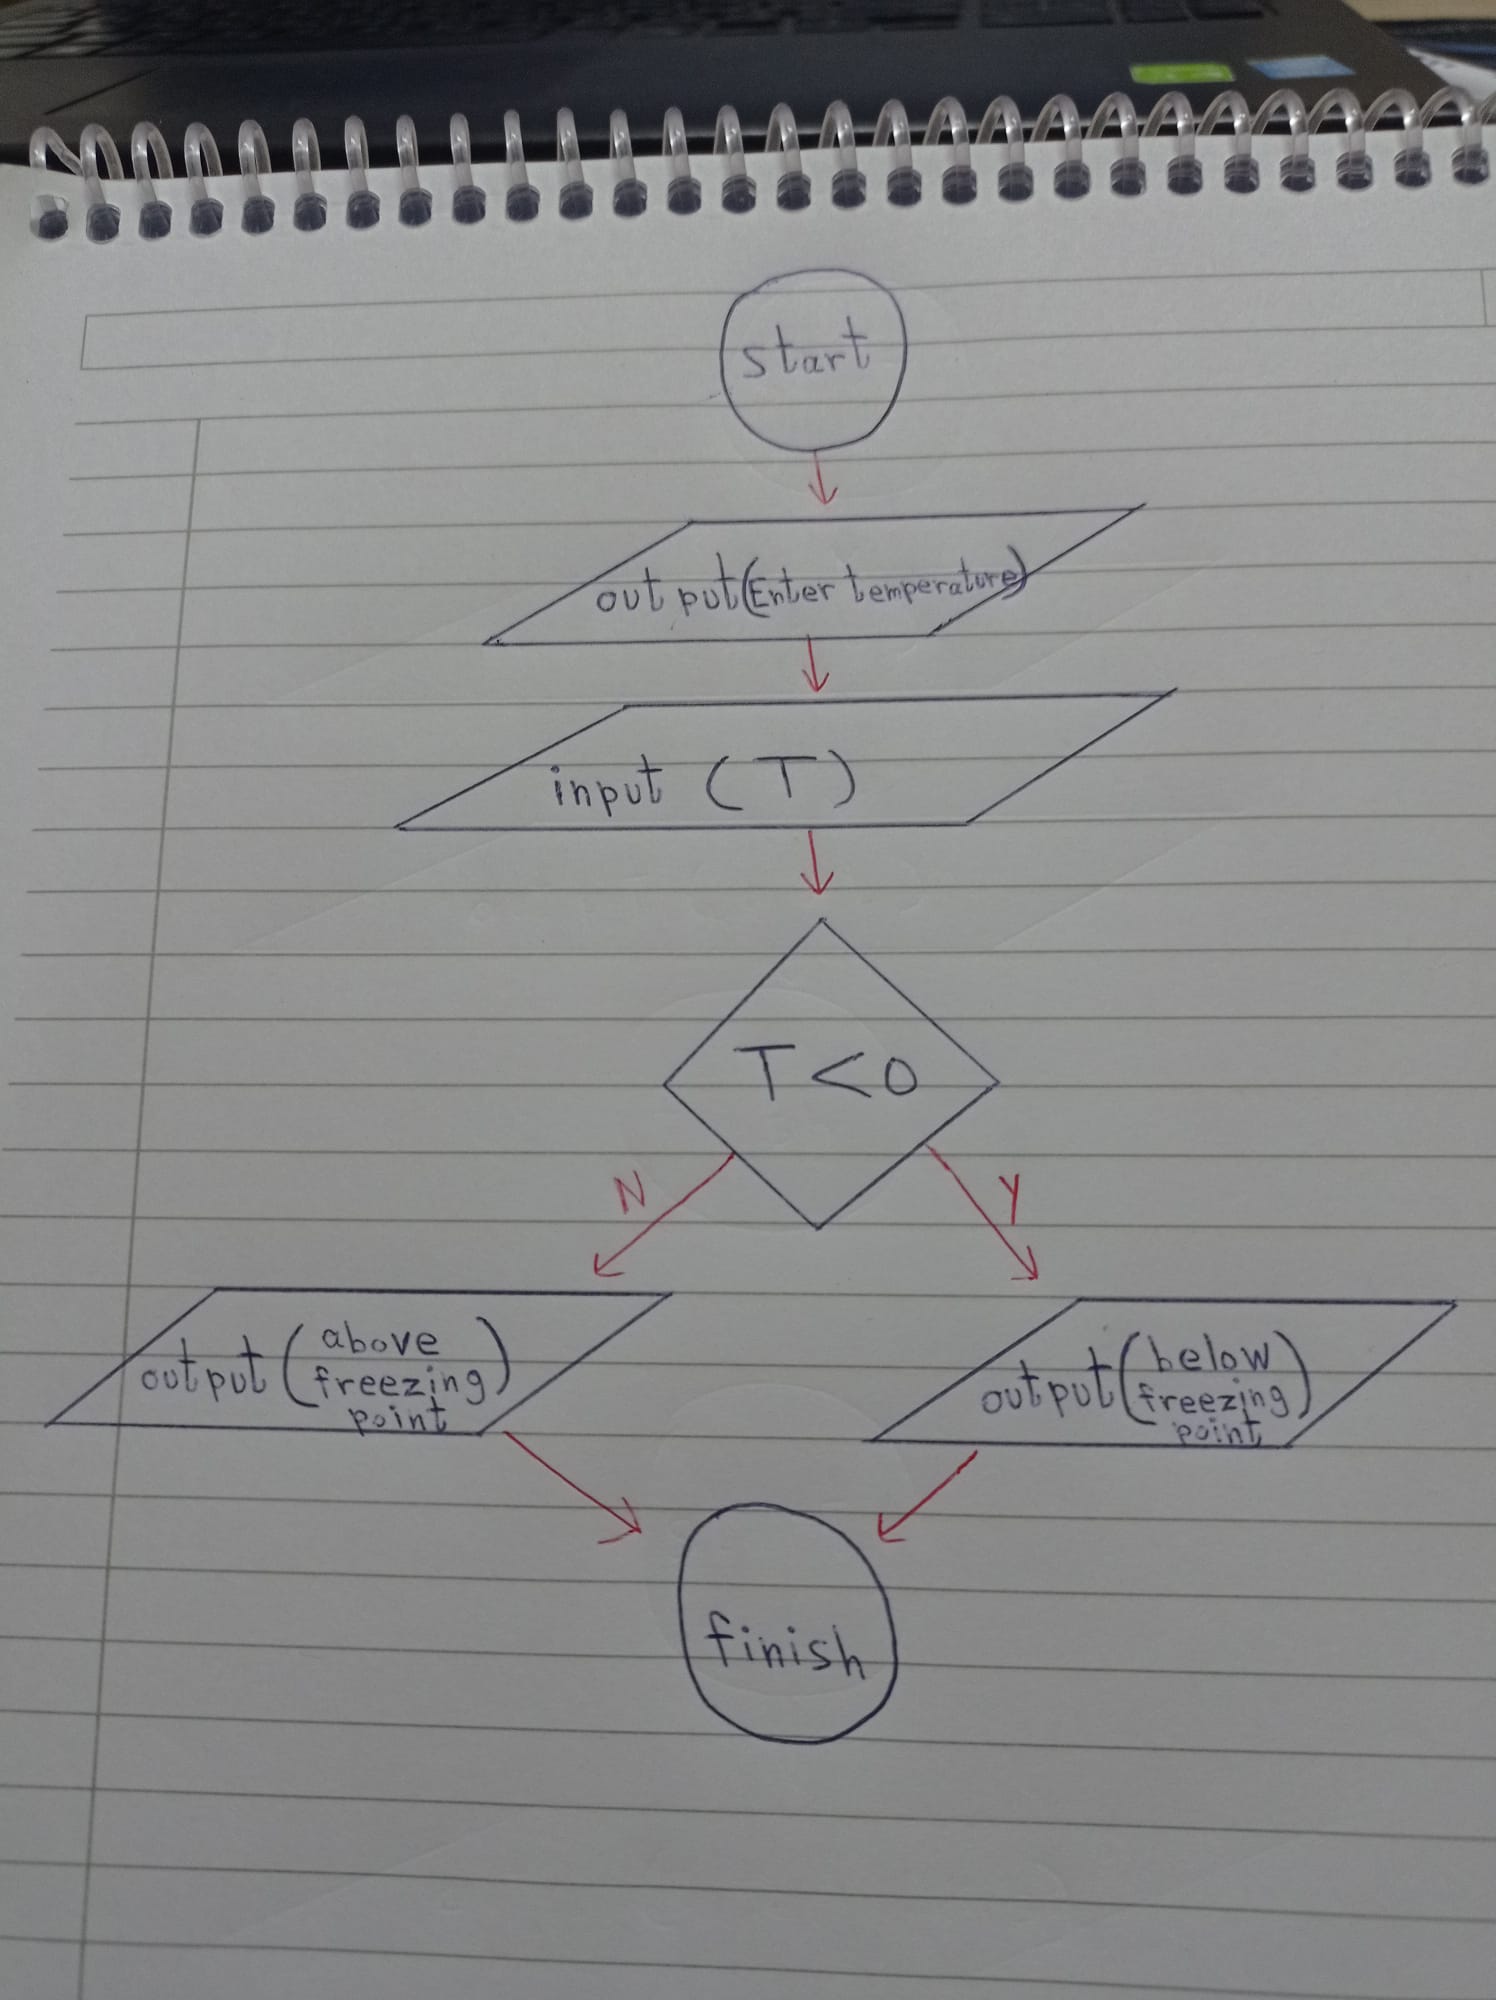 start
output(Enter temperature)
input (T)
T<0
N
Y
output(above
freezing
point)
output(below
freezing
point)
finish